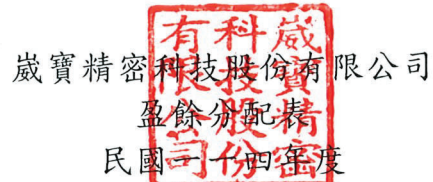 崴寶精密科技股份有限公司
盈餘分配表
民國一一四年度
崴寶精密
科技股份
有限公司